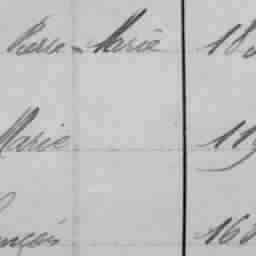 Pierre-Marie 18
Marie 119
ançois 16